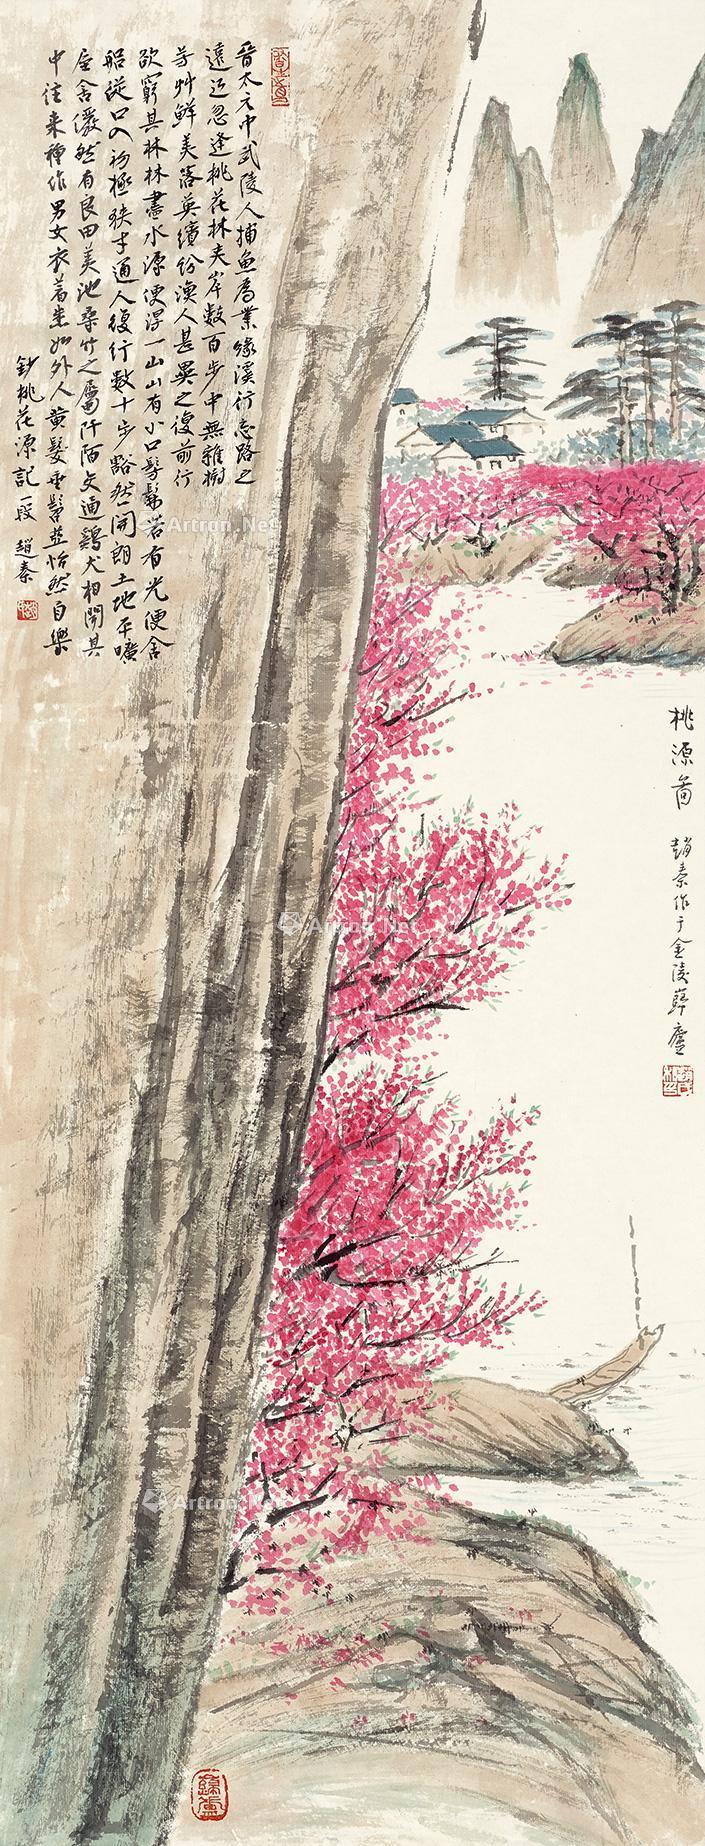 晉太元中武陵人捕魚為業緣溪行忘路之
遠近忽逢桃花林夾岸數百步中無雜樹
芳艸鮮美落英繽紛漁人甚異之復前行
欲窮其林林盡水源便得一山山有小口髣髴若有光便舍
船從口入初極狹才通人復行數十步豁然開朗土地平曠
屋舍儼然有良田美池桑竹之屬阡陌交通鷄犬相聞其
中往來種作男女衣著悉如外人黃髮垂髫並怡然自樂
鈔桃花源記一段 趙秦
桃源圖 趙秦作于金陵廬
Artron.Net
Artron.Net
Artron.Net